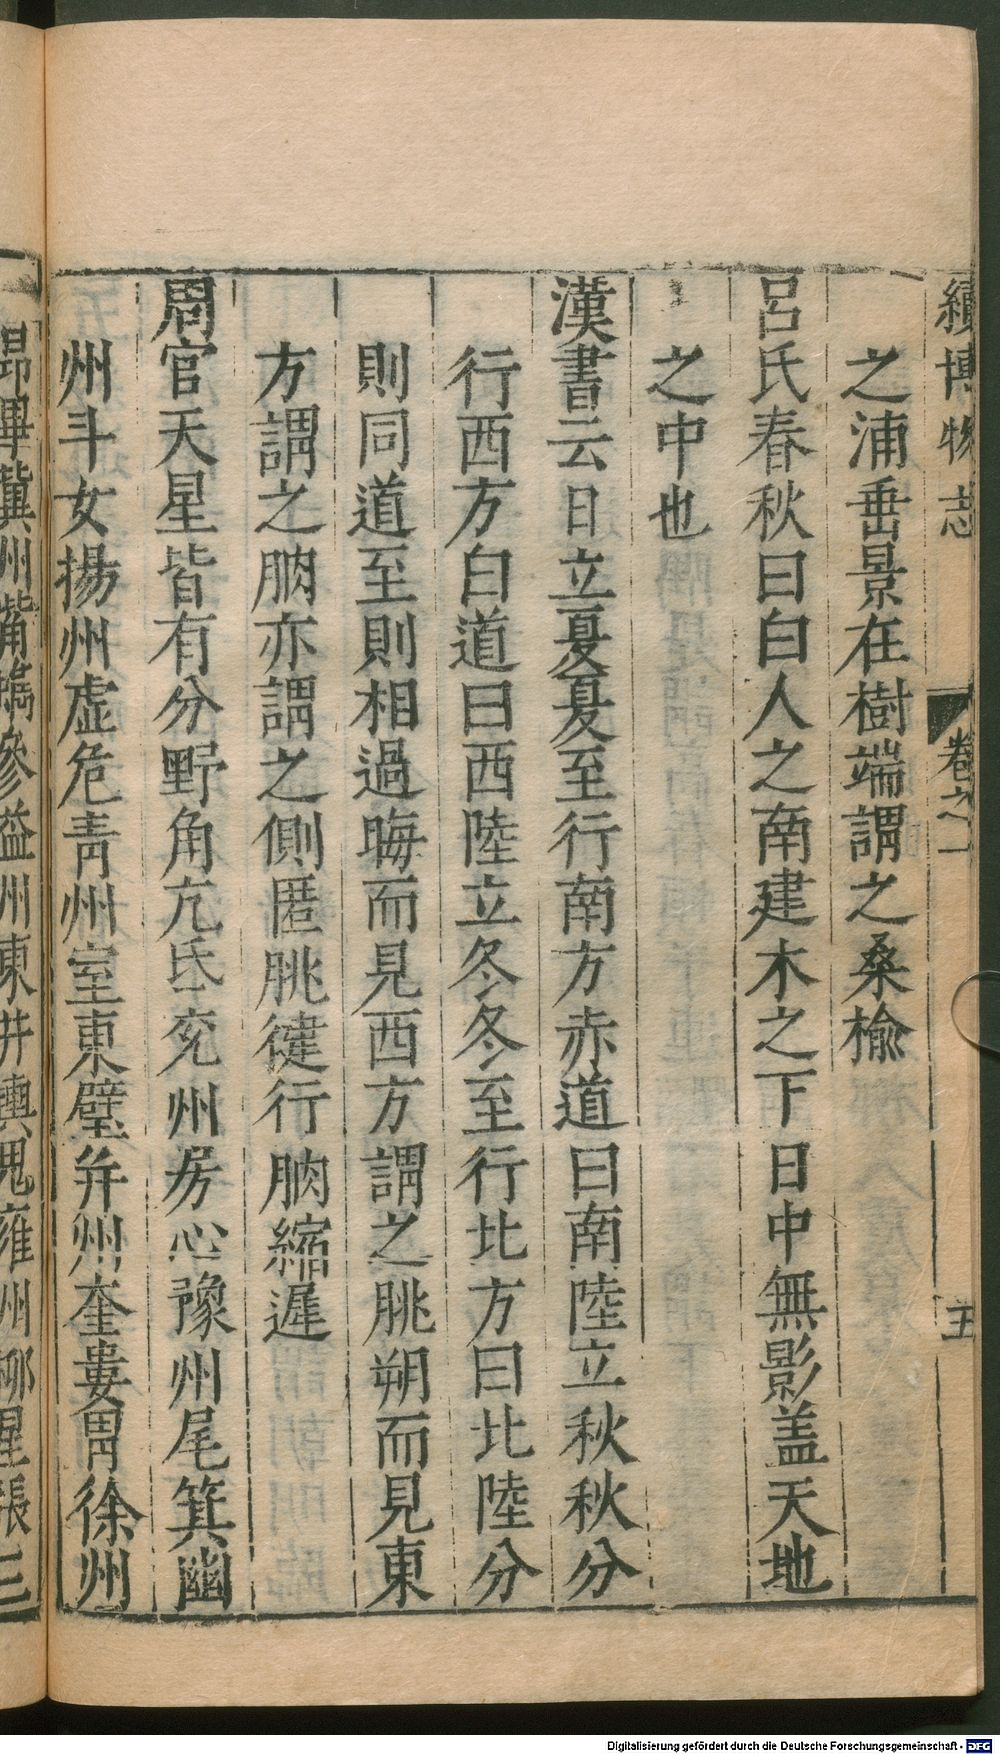 續博物志 卷之一 五
之浦垂景在樹端謂之桑榆
呂氏春秋曰白人之南建木之下日中無影盖天地
之中也
漢書云日立夏夏至行南方赤道曰南陸立秋秋分
行西方白道曰西陸立冬冬至行北方曰北陸分
則同道至則相過晦而見西方謂之朓朔而見東
方謂之朒亦謂之側匿朓徤行朒縮遲
周官天星皆有分野角亢氐兖州房心豫州尾箕幽
州斗女揚州虛危青州室東壁并州奎婁胃徐州
昴畢冀州觜觿參益州東井輿鬼雍州柳星張三
Digitalisierung gefördert durch die Deutsche Forschungsgemeinschaft - DFG